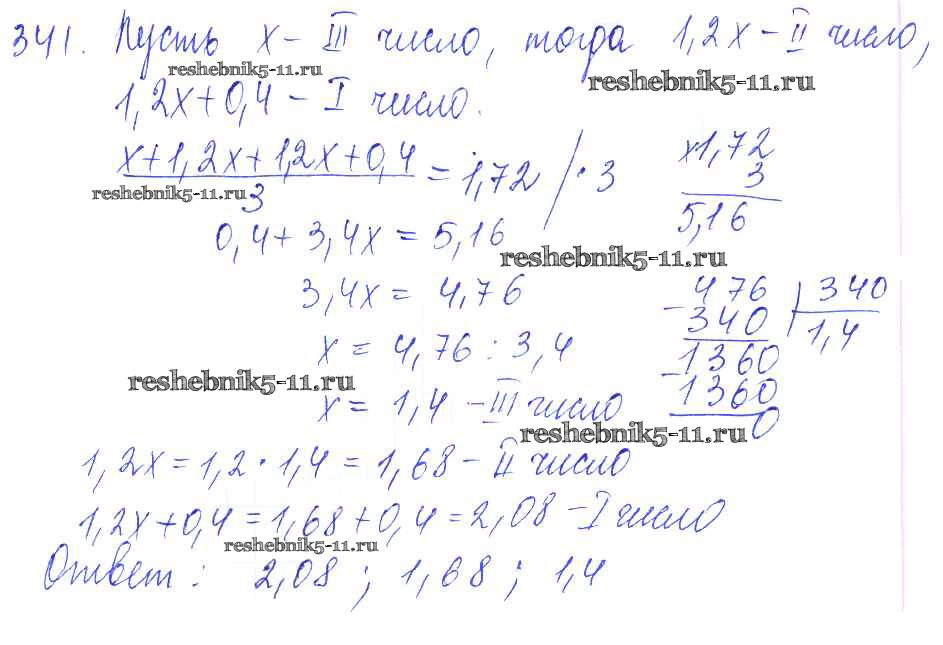 341. Пусть x – III число, тогда 1,2x – II число,
reshebnik5-11.ru
reshebnik5-11.ru
1,2x+0,4 – I число.
x+1,2x+1,2x+0,4
3
= 1,72 / · 3
reshebnik5-11.ru
x1,72
3
5,16
0,4 + 3,4x = 5,16
reshebnik5-11.ru
3,4x = 4,76
x = 4,76 : 3,4
_476 | 340
340 1,4
_1360
1360
0
reshebnik5-11.ru
x = 1,4 – III число
reshebnik5-11.ru
1,2x = 1,2 · 1,4 = 1,68 – II число
1,2x + 0,4 = 1,68 + 0,4 = 2,08 – I число
reshebnik5-11.ru
Ответ: 2,08 ; 1,68 ; 1,4